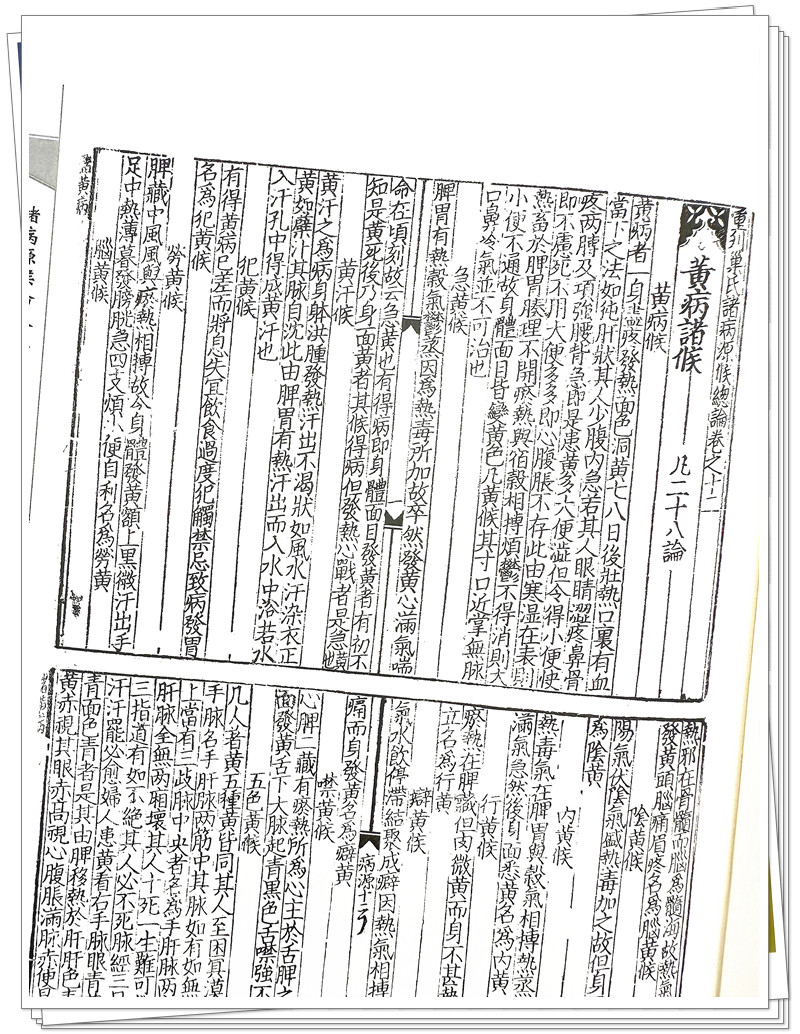 重刊巢氏諸病源候總論卷之十二
黃病諸候 凡二十八論
黃病候
黃病者一身盡疼發熱面色洞黃七八日後壯熱口裏有血
當下之法如㹠肝狀其人少腹內急若其人眼睛澀疼鼻骨
疼兩膊及項強腰背急即是患黃多大便澀但令得小便快
即不慮死不用大便多多即心腹脹不存此由寒濕在表則
熱畜於脾胃腠理不開瘀熱與宿穀相搏煩鬱不得消則大
小便不通故身體面目皆變黃色凡黃候其寸口近掌無脉
口鼻冷氣並不可治也
急黃候
脾胃有熱穀氣鬱蒸因為熱毒所加故卒然發黃心滿氣喘
命在頃刻故云急黃也有得病即身體面目發黃者有初不
知是黃死後乃身面黃者其候得病但發熱心戰者是急黃也
黃汗候
黃汗之為病身躰洪腫發熱汗出不渴狀如風水汗染衣正
黃如蘗汁其脉自沉此由脾胃有熱汗出而入水中浴若水
入汗孔中得成黃汗也
犯黃候
有得黃病已差而將息失宜飲食過度犯觸禁忌致病發胃
名為犯黃候
勞黃候
脾藏中風風與瘀熱相搏故令身體發黃額上黑微汗出手
足中熱薄暮發膀胱急四支煩小便自利名為勞黃
腦黃候
諸黃病
熱邪在骨髓而腦為髓海故熱氣
發黃頭腦痛眉疼名為腦黃候
陰黃候
陽氣伏陰氣盛熱毒加之故但身
為陰黃
內黃候
熱毒氣在脾胃與穀氣相搏熱蒸
滿氣急然後身面悉黃名為內黃
行黃候
瘀熱在脾藏但肉微黃而身不甚熱
立名為行黃
癖黃候
氣水飲停滯結聚成癖因熱氣相搏
痛而身發黃名為癖黃
病源十二
噤黃候
心脾二藏有瘀熱所為心主於舌脾之
面發黃舌下大脉起青黑色舌噤強不
五色黃候
凡人著黃五種黃皆同其人至困冝漠
手脉名手肝脉兩筋中其脉如有如無
上當有三歧脉中央者名為手肝脉兩
肝脉全無兩廂壞其人十死一生難可
三指道有如不絕其人必不死脉經三曰
汗汗罷必愈婦人患黃看右手脉眼青
青面色青者是其由脾移熱於肝肝色青
黃赤視其眼赤高視心腹脹滿脉赤便是
諸黃病
諸病源候